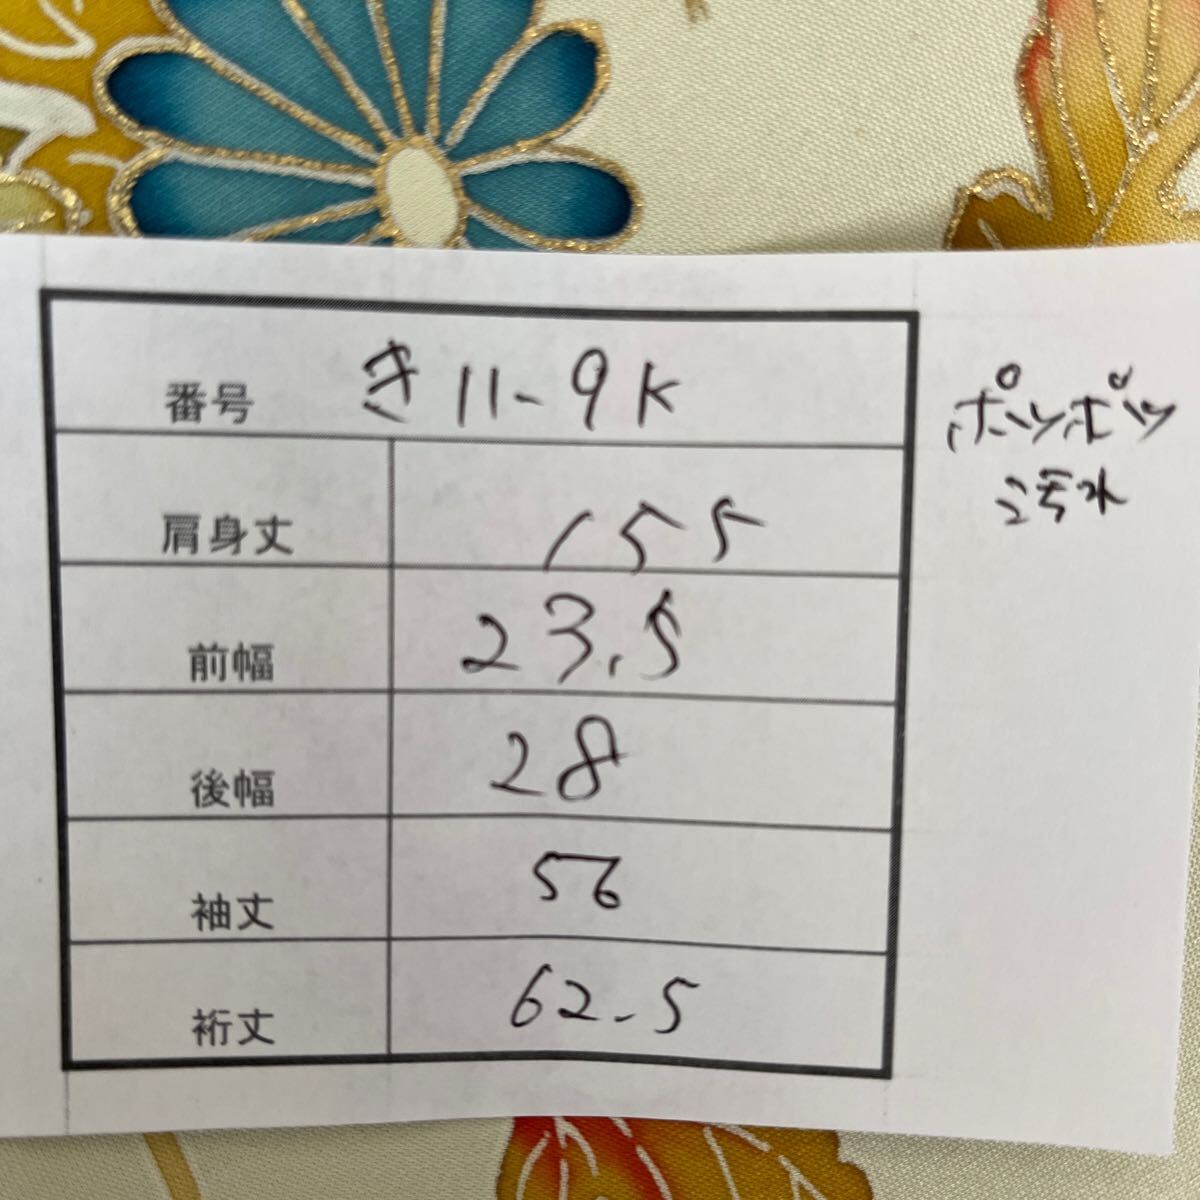 番号 き11-9K
肩身丈 155
前幅 23.5
後幅 28
袖丈 56
裄丈 62.5
ポツポツ
汚れ